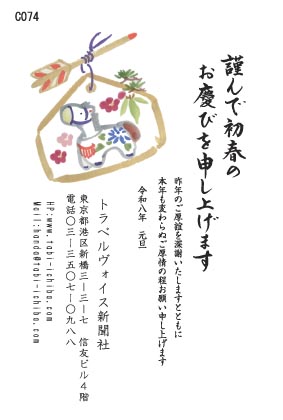 C074
謹んで初春の
お慶びを申し上げます
昨年のご厚誼を深謝いたしますとともに
本年も変わらぬご厚情の程お願い申し上げます
令和八年 元旦
トラベルヴォイス新聞社
東京都港区新橋三-三-七 信友ビル4階
電話〇三-三五〇七-〇九八八
HP:www.tabi-ichiba.com
Mail:honda@tabi-ichiba.com